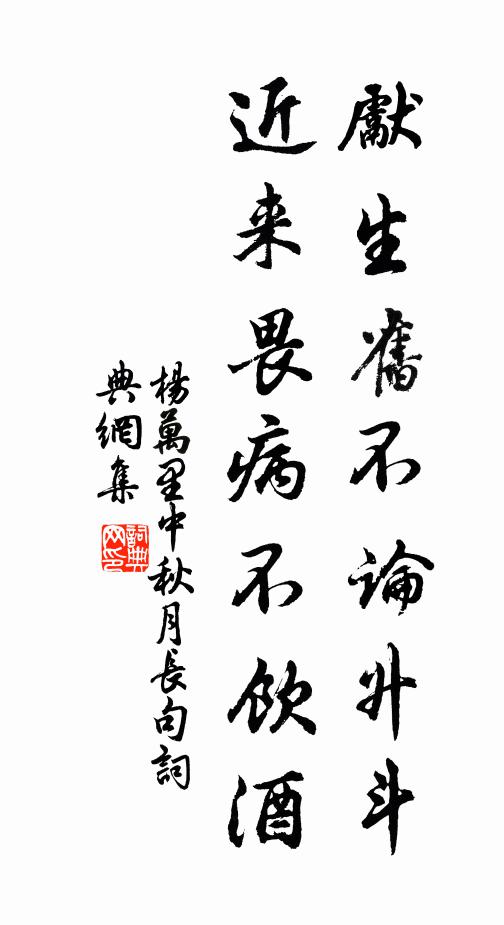 獻生舊不論升斗
近来畏病不飲酒
楊萬里中秋月長句詞
典網集
詞典网印